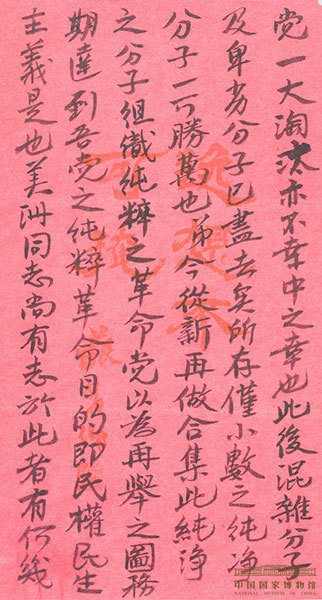 党一大淘汰亦不幸中之幸也此後混雜分子
及卑劣分子已盡去矣所存僅小數之純净
分子一可勝萬也弟今從新再做合集此純净
之分子組織純粹之革命党以為再舉之圖務
期達到吾党之純粹革命目的即民權民生
主義是也美洲同志尚有志於此者有何幾
中国国家博物馆
NATIONAL MUSEUM OF CHINA